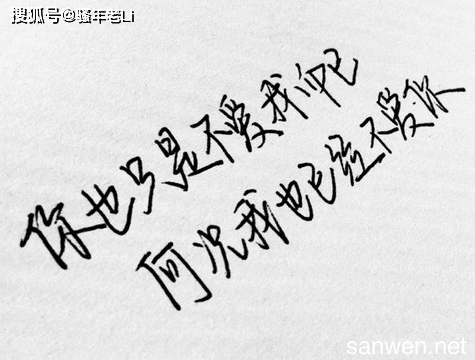 搜狐号@骚年老Li
你也只是不爱我而已
何况我也已经不爱你
sanwen.net